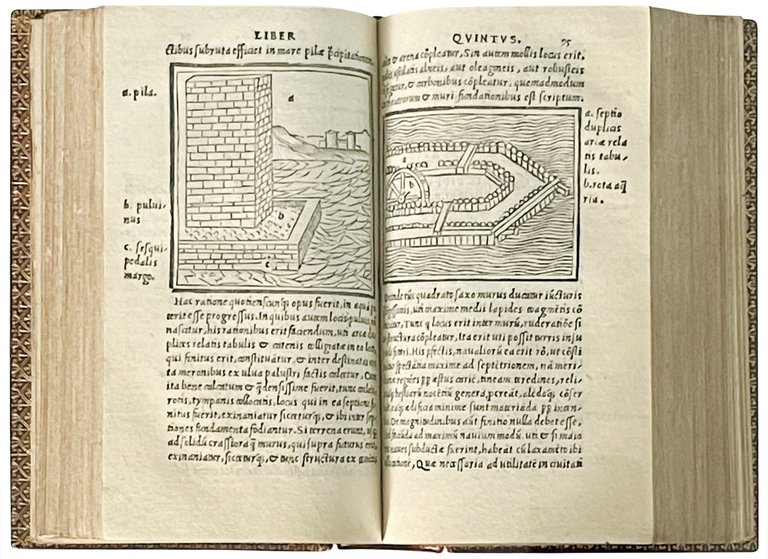 LIBER
ctibus subruta efficiet in mare pilæ
a. pila.
a
b. pului-
nus
c. sesqui-
pedalis
margo.
b
c
Hac ratione quotienscunq; opus fuerit, in aqua
terit esse progressus. In quibus autem locis puluis
nascitur, his rationibus erit faciendum, uti arcæ
plices relatis tabulis & catenis colligatæ in eo
qui finitus erit, constituātur, & inter destinas
ta meronibus ex ulua palustri factis calcetur. Cum
ita bene calcatum & q̄ densissime fuerit, tunc
rotis, tympanis collocatis, locus qui in ea septione
nitus fuerit, exinaniatur sicceturq;, & ibi inter
tiones fundamenta fodiantur. Si terrena erunt,
ad solidū crassiora q̄ murus, qui supra futurus erit
exinaniatur, sicceturq;, & tunc structura ex
QVINTVS. 95
& arena cōpleatur, Sin autem mollis locus erit,
ustulatis alneis, aut oleagneis, aut robusteis
& carbonibus cōpleatur, quemadmodum
& muri fundationibus est scriptum.
a. septio
duplicis
arcæ rela
tis tabu-
lis.
b. rota aq̄
ria.
a
b
Deinde tūc quadrato saxo murus ducatur iūcturis
uti maxime medii lapides coagmētis cō
Tunc q̄ locus erit inter murū, ruderatiōe si
structura cōpleatur, Ita erit uti possit turris insu
His pfectis, naualiorū ea erit rō, ut cōsti
spectātia maxime ad septētrionem, nā meri-
regiōes pp æstus cariē, tineam, teredines, reli
bestiarū nocētiū genera, pcreāt,
ædificia minime sunt materiāda, pp incen-
De magnitudinibus aut finitio nulla debet esse,
ad maximū nauium modū, uti & si maio
naues subductæ fuerint, habeāt cū laxamēto ibi
Quæ necessaria ad utilitatē in ciuitati